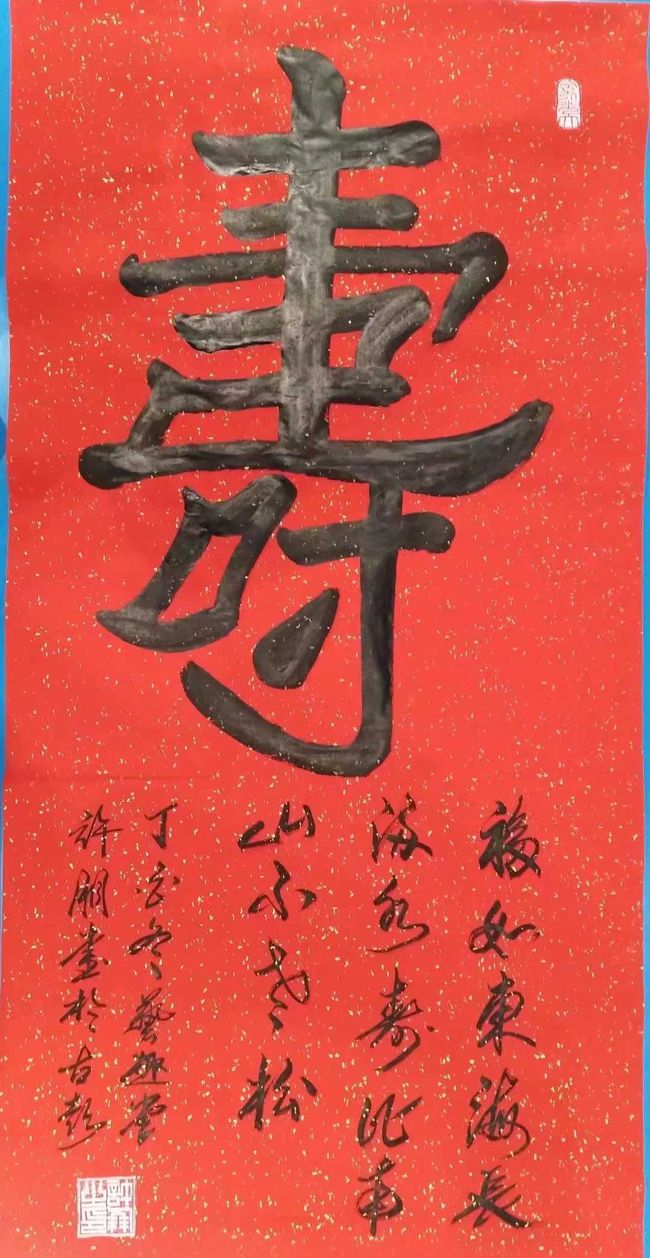 壽
福如東海長
流水壽比南
山不老松
丁酉冬藝趣堂
許朋畫於古彭